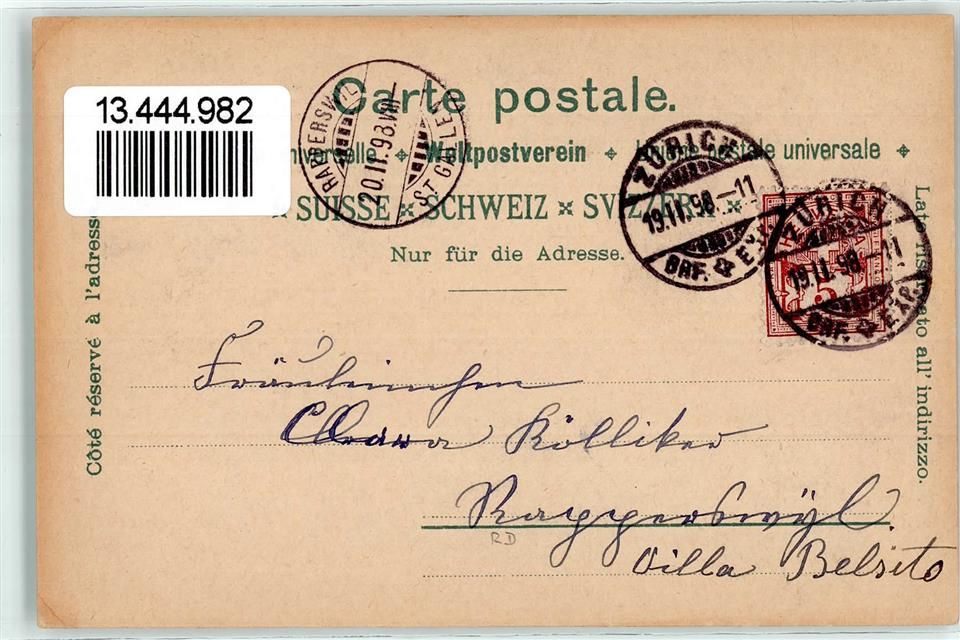 13.444.982
Carte postale.
universelle Weltpostverein Unione postale universale
SUISSE SCHWEIZ SVIZZERA
Nur für die Adresse.
Côté réservé à l'adresse
Lato riservato all' indirizzo.
RAPPERSWIL
20.II.98.VIII
ST GALLEN
ZÜRICH
19.II.98.-11
BRF. EXP.
ZÜRICH
19.II.98.-11
BRF. EXP.
5
Fräulein
Clara Kölliker
Rapperswyl.
RD
Villa Belsito